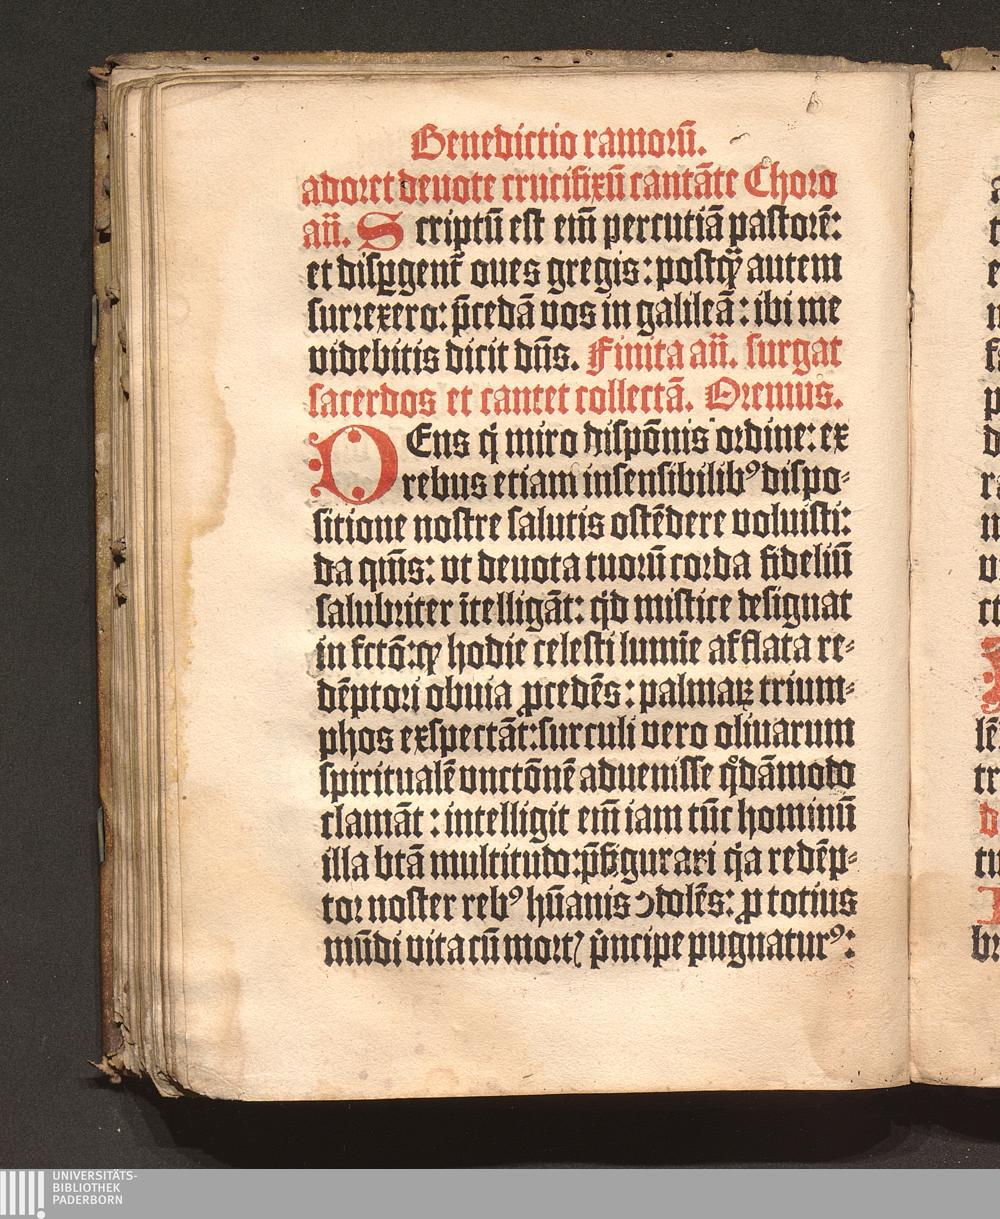 Benedictio ramorū.
adoret deuote crucifixū cantāte Choro
añ. Scriptū est em̄ percutiā pastorē:
et disꝑgent᷑ oues gregis: postꝙ̄ autem
surrexero: p̄cedā vos in galileā: ibi me
videbitis dicit dn̄s. Finita añ. surgat
sacerdos et cantet collectā. Oremus.
DEus q̇ miro dispōnis ordine: ex
rebus etiam insensibilibꝰ dispo⸗
sitione nostre salutis ostēdere voluisti:
da qm̄s: vt deuota tuorū corda fideliū
salubriter ītelligāt: qd̓ mistice designat
in fctō: ꝙ hodie celesti lumīe afflata re⸗
dēptori obuia ꝓcedēs: palmaꝝ trium⸗
phos exspectāt: surculi vero oliuarum
spiritualē vnctōnē aduenisse qͦdāmodo
clamāt: intelligit em̄ iam tūc hominū
illa btā multitudo: p̄figurari q̇a redēp⸗
tor noster rebꝰ hūanis ꝯdolēs: ꝓ totius
mūdi vita cū mort̛ p̓ncipe pugnaturꝰ:
UNIVERSITÄTS-
BIBLIOTHEK
PADERBORN